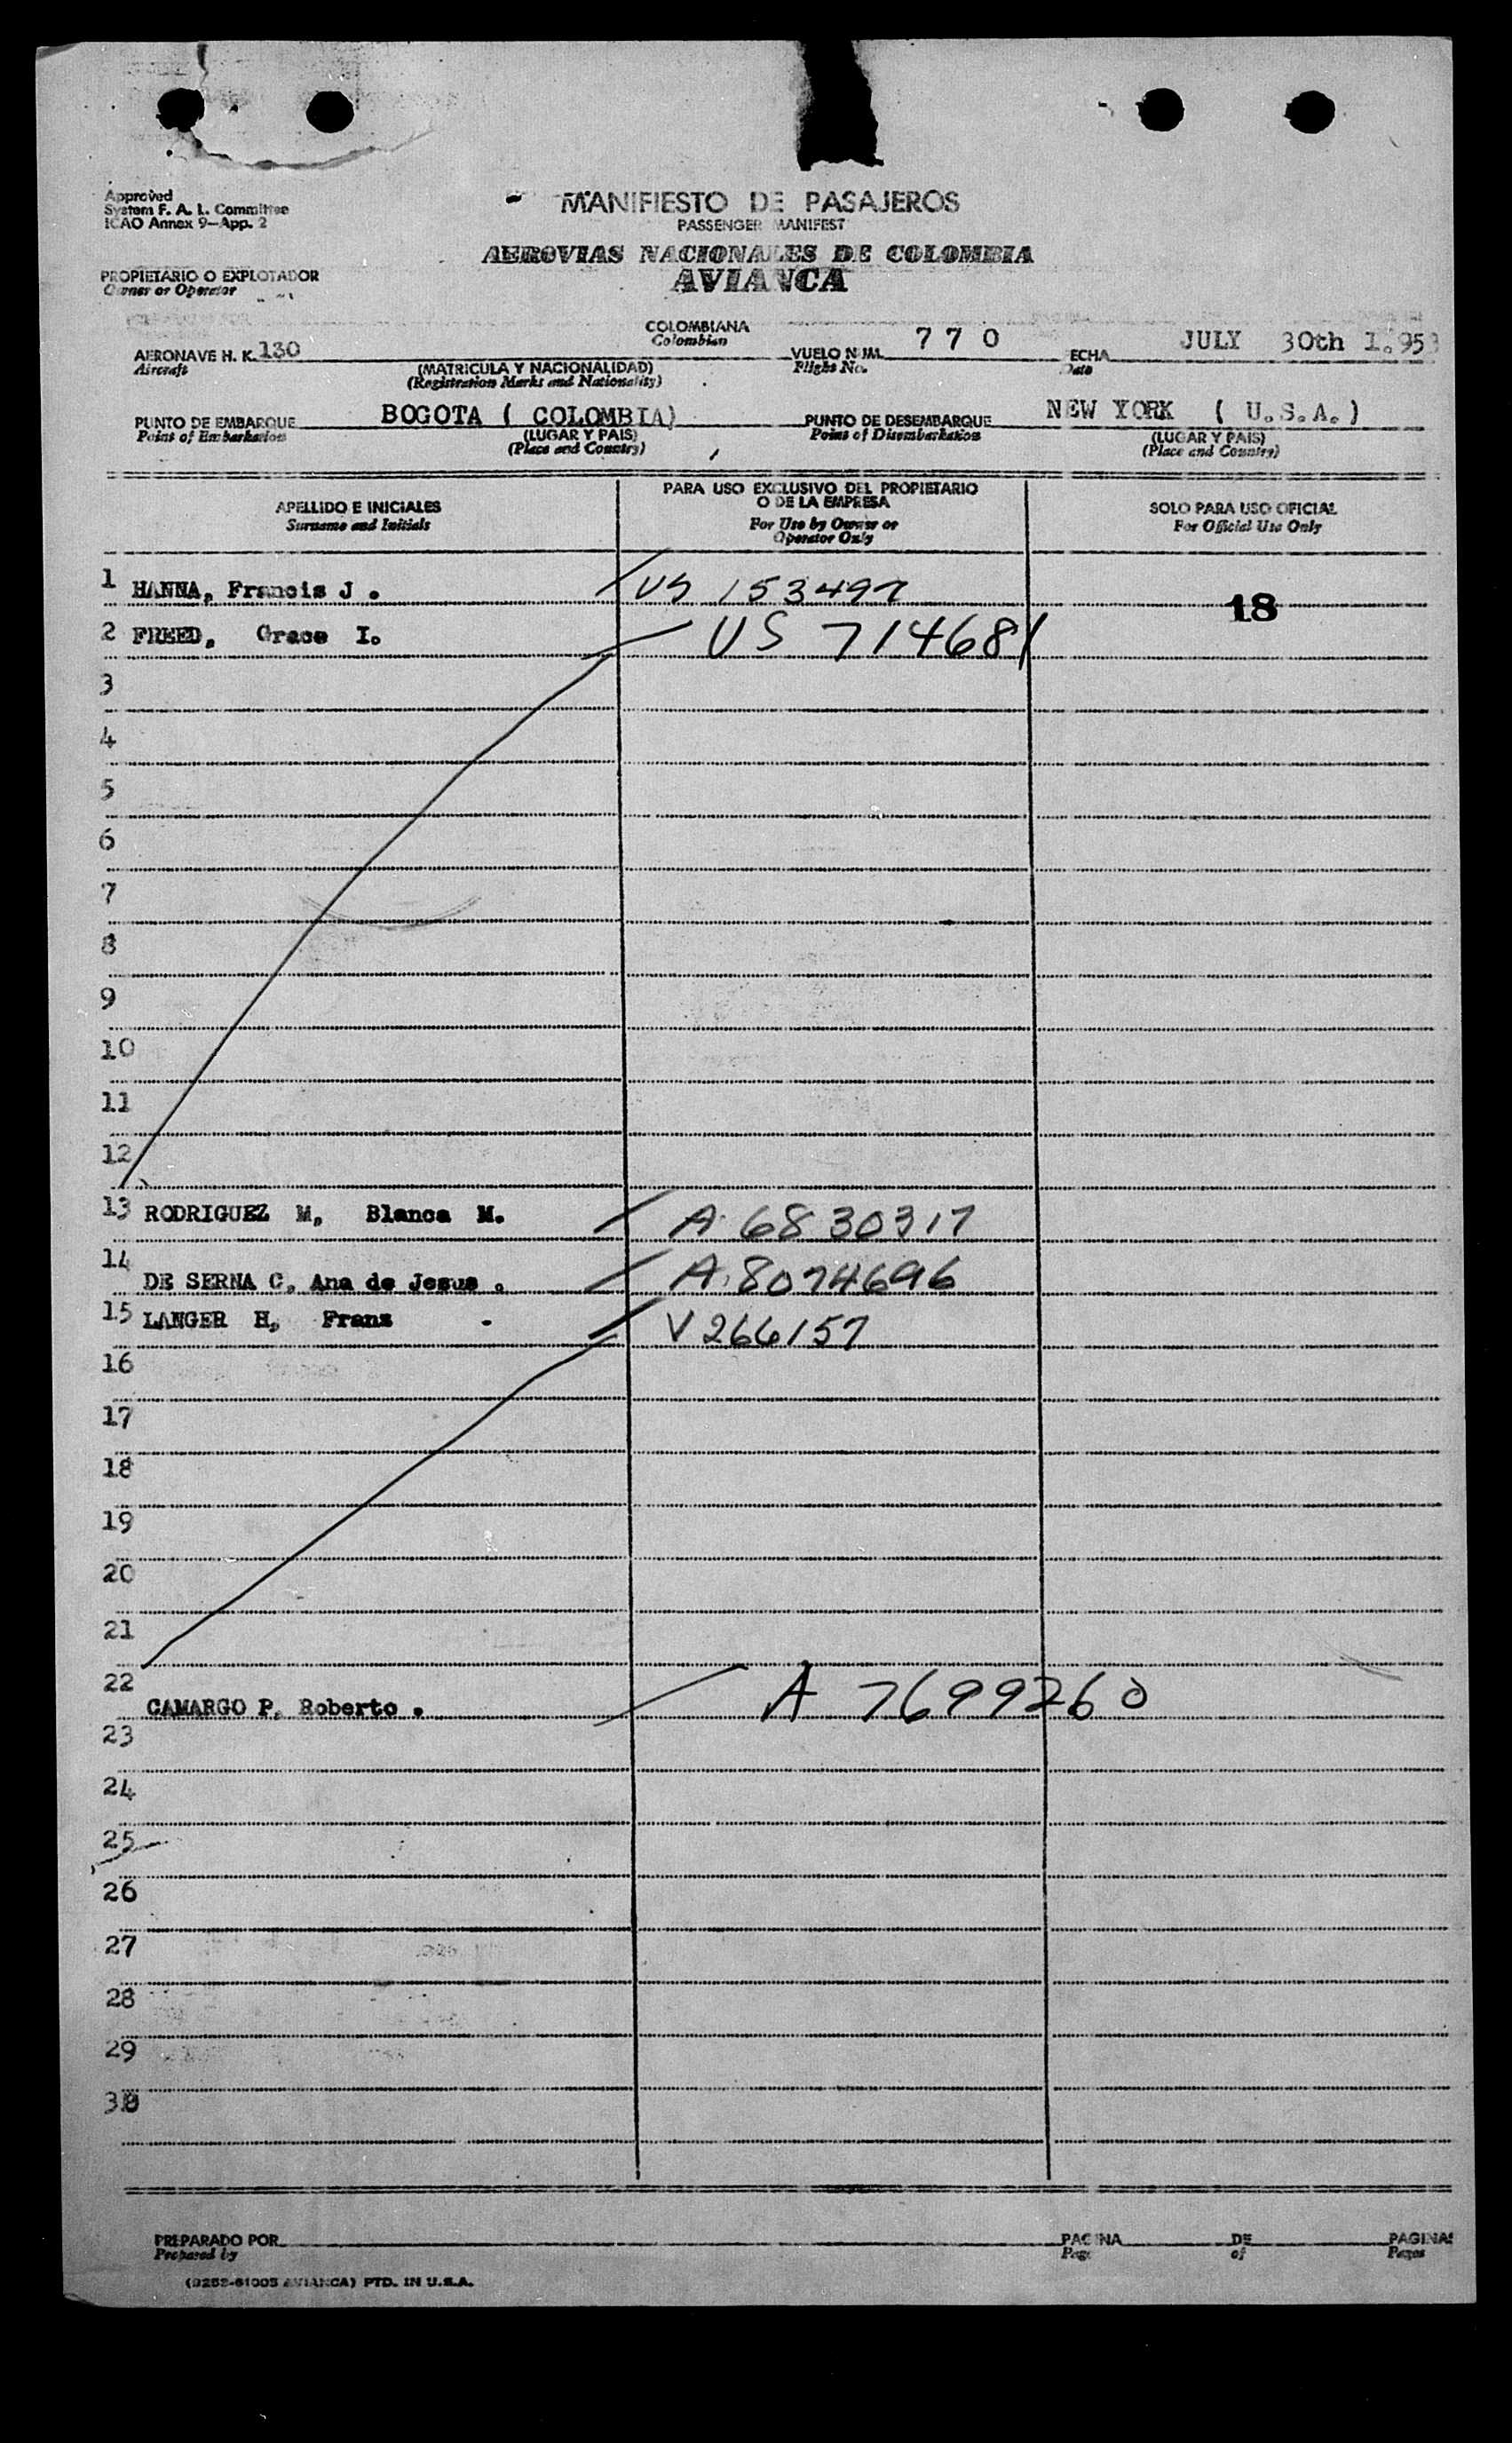 Approved
System F. A. L. Committee
ICAO Annex 9—App. 2
MANIFIESTO DE PASAJEROS
PASSENGER MANIFEST
AEROVIAS NACIONALES DE COLOMBIA
AVIANCA
PROPIETARIO O EXPLOTADOR
Owner or Operator
COLOMBIANA
Colombian
AERONAVE H. K. 130
Aircraft
(MATRICULA Y NACIONALIDAD)
(Registration Marks and Nationality)
VUELO NUM. 770
Flight No.
FECHA JULY 30th 1.953
Date
PUNTO DE EMBARQUE BOGOTA ( COLOMBIA)
Point of Embarkation
(LUGAR Y PAIS)
(Place and Country)
PUNTO DE DESEMBARQUE NEW YORK ( U.S.A.)
Point of Disembarkation
(LUGAR Y PAIS)
(Place and Country)
APELLIDO E INICIALES
Surname and Initials
PARA USO EXCLUSIVO DEL PROPIETARIO
O DE LA EMPRESA
For Use by Owner or
Operator Only
SOLO PARA USO OFICIAL
For Official Use Only
1 HANNA, Francis J . US 153497
18
2 FREED, Grace I. US 714681
3
4
5
6
7
8
9
10
11
12
13 RODRIGUEZ M, Blanca M. A 6830317
14 DE SERNA C, Ana de Jesus . A 8074696
15 LANGER H, Franz V 266157
16
17
18
19
20
21
22 CAMARGO P, Roberto . A 7699260
23
24
25
26
27
28
29
30
PREPARADO POR
Prepared by
PAGINA DE PAGINAS
Page of Pages
AVIANCA) PTD. IN U.S.A.